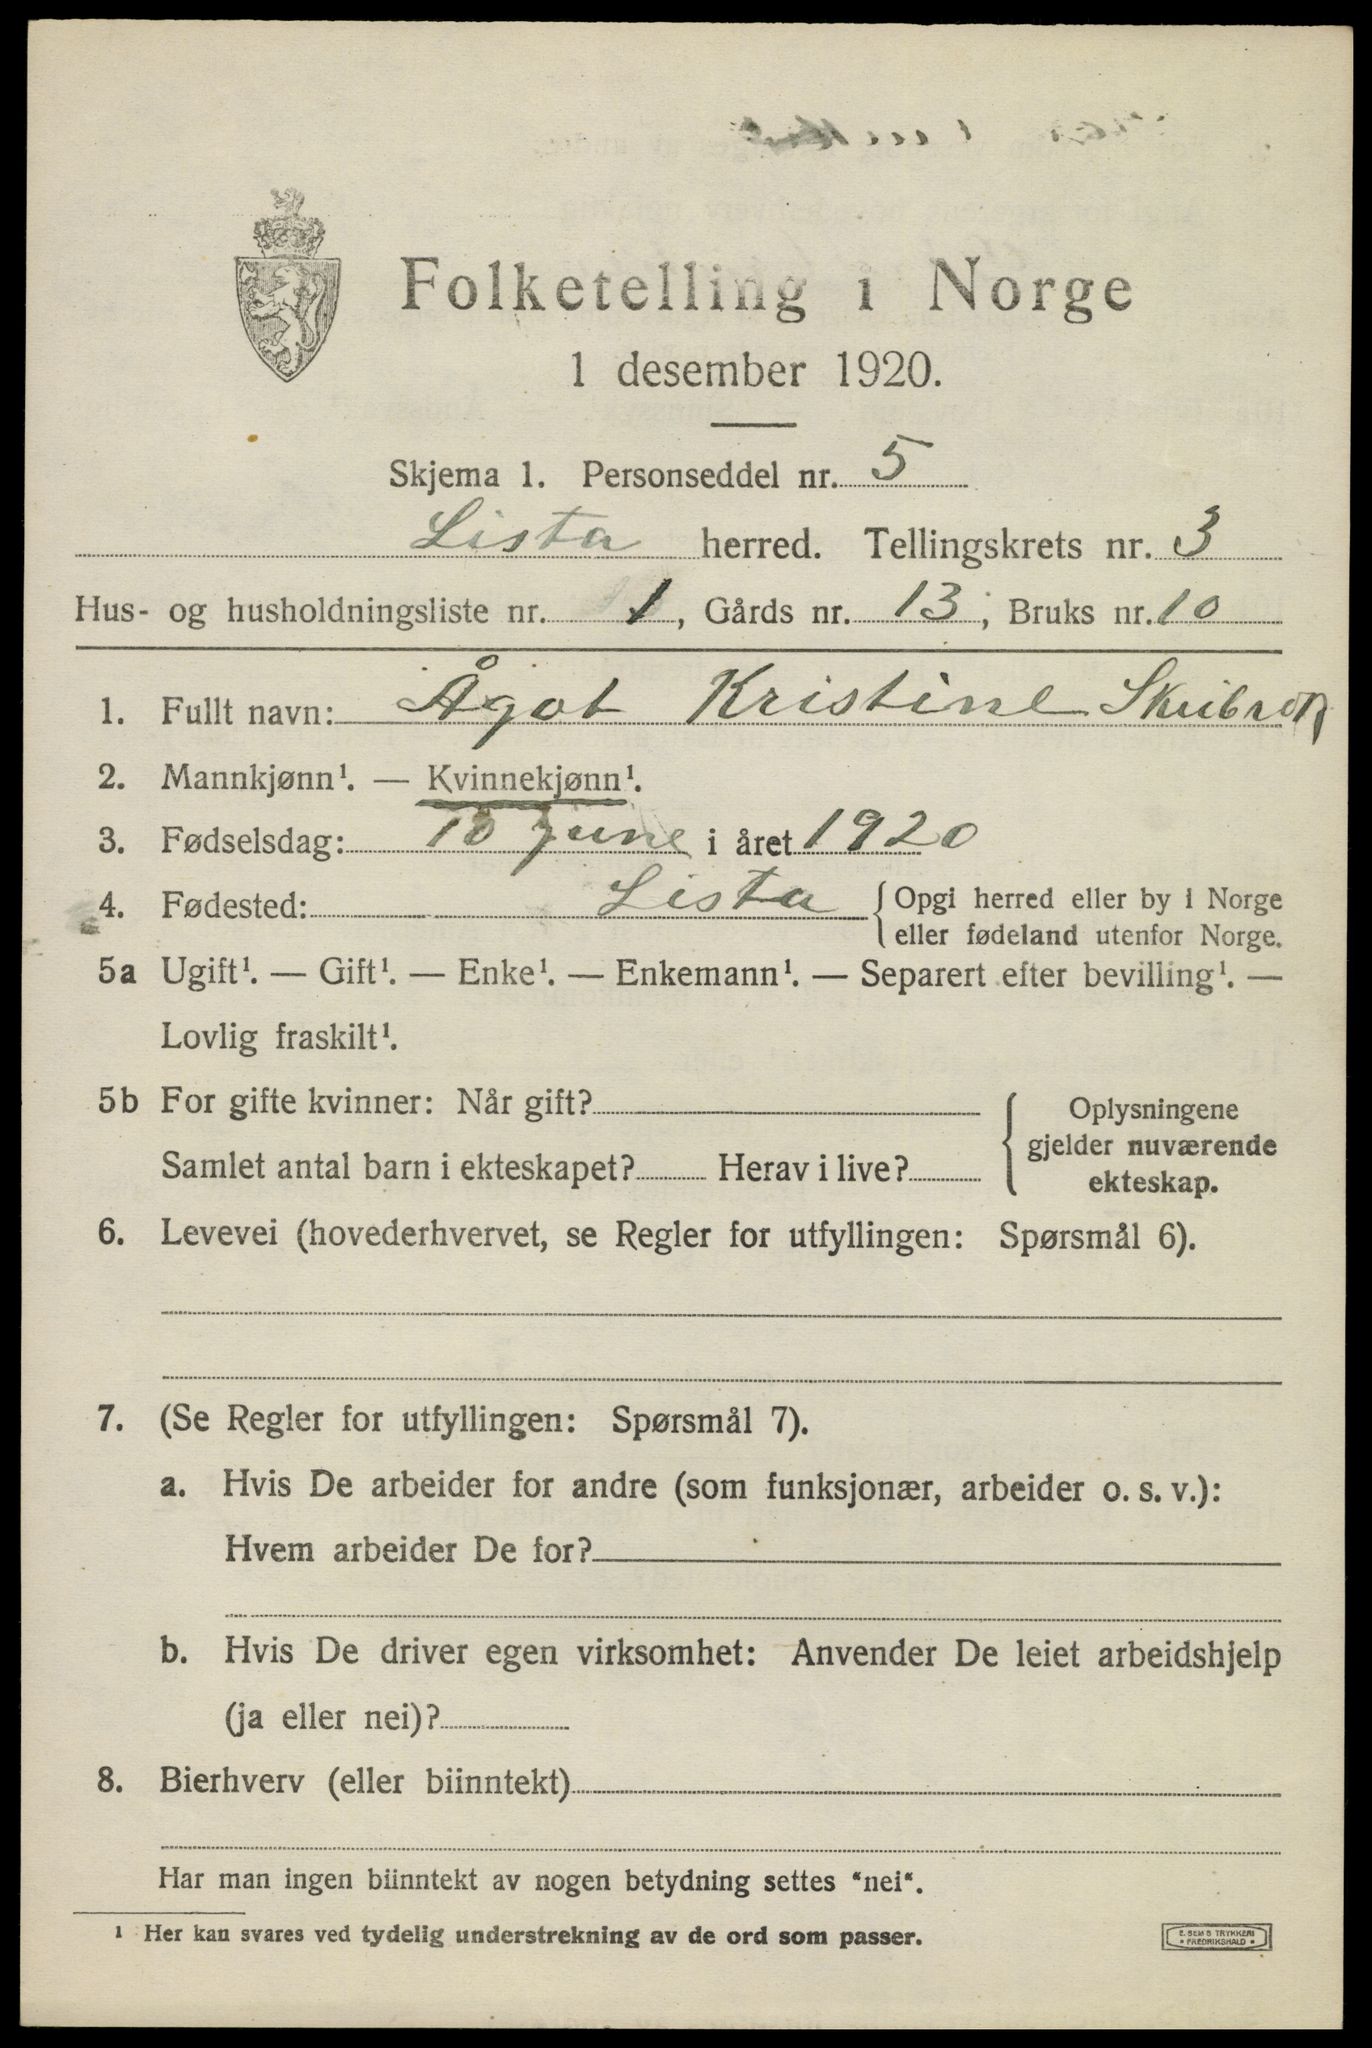 Folketelling i Norge
1 desember 1920.
Skjema 1. Personseddel nr. 5
Lista herred. Tellingskrets nr. 3
Hus- og husholdningsliste nr. 1, Gårds nr. 13; Bruks nr. 10
1. Fullt navn: Ågot Kristine
2. Mannkjønn¹. — Kvinnekjønn¹.
3. Fødselsdag: 10 june i året 1920
4. Fødested: Lista {Opgi herred eller by i Norge
eller fødeland utenfor Norge.
5a Ugift¹. — Gift¹. — Enke¹. — Enkemann¹. — Separert efter bevilling¹. —
Lovlig fraskilt¹.
5b For gifte kvinner: Når gift? { Oplysningene
gjelder nuværende
Samlet antal barn i ekteskapet? Herav i live?
ekteskap.
6. Levevei (hovederhvervet, se Regler for utfyllingen: Spørsmål 6).
7. (Se Regler for utfyllingen: Spørsmål 7).
a. Hvis De arbeider for andre (som funksjonær, arbeider o. s. v.):
Hvem arbeider De for?
b. Hvis De driver egen virksomhet: Anvender De leiet arbeidshjelp
(ja eller nei)?
8. Bierhverv (eller biinntekt)
Har man ingen biinntekt av nogen betydning settes "nei".
¹ Her kan svares ved tydelig understrekning av de ord som passer.
E. SEM'S TRYKKERI
* FREDRIKSHALD *